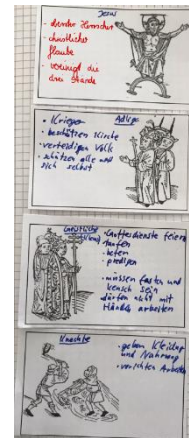 Jesus
- oberster Herrscher
- christlicher
Glaube
- vereinigt die
drei Stände
Adlige
• Krieger
• beschützen Kirche
• verteidigen Volk
• schützen alle und
sich selbst
Geistliche
- Gottesdienste feiern
- taufen
- beten
- predigen
- müssen fasten und
keusch sein
dürfen nicht mit
Händen arbeiten
Knechte
- geben Kleidung
und Nahrung
- verrichten Arbeiten